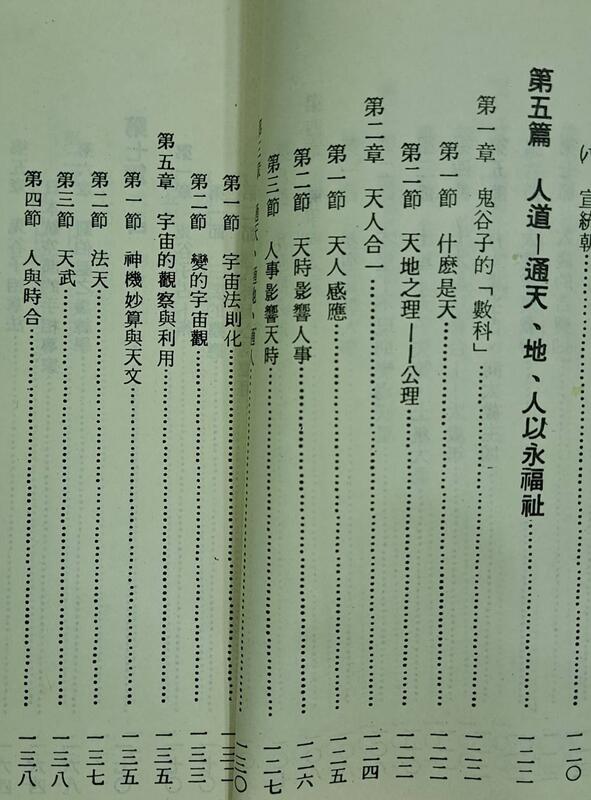 宣統朝……一二〇
第五篇 人道—通天、地、人以永福祉……一二二
第一章 鬼谷子的「數科」……一二二
第一節 什麽是天……一二二
第二節 天地之理——公理……一二三
第二章 天人合一……一二四
第一節 天人感應……一二五
第二節 天時影響人事……一二六
第三節 人事影響天時……一二七
通天、通地、通人……一三〇
第一節 宇宙法則化……一三二
第二節 變的宇宙觀……一三三
第五章 宇宙的觀察與利用……一三五
第一節 神機妙算與天文……一三五
第二節 法天……一三七
第三節 天武……一三八
第四節 人與時合……一三八